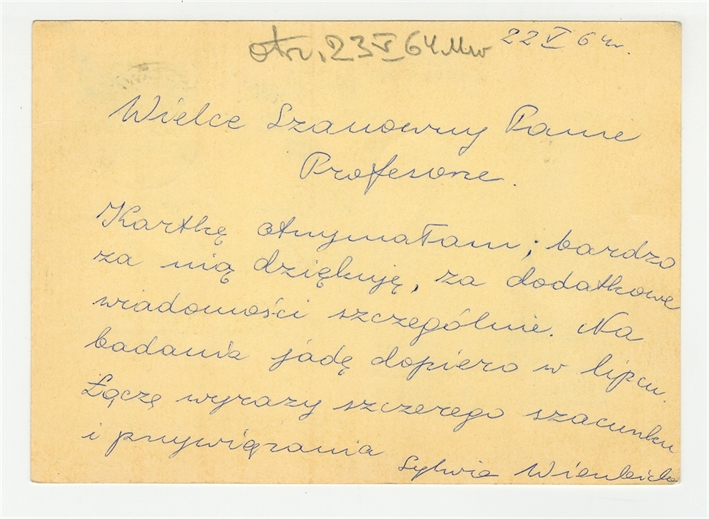 otr. 23 V 64 Mw
22 V 64 r.
Wielce Szanowny Panie
Profesorze.
Kartkę otrzymałam; bardzo
za nią dziękuję, za dodatkowe
wiadomości szczególnie. Na
badania jadę dopiero w lipcu.
Łączę wyrazy szczerego szacunku
i przywiązania
Sylwia